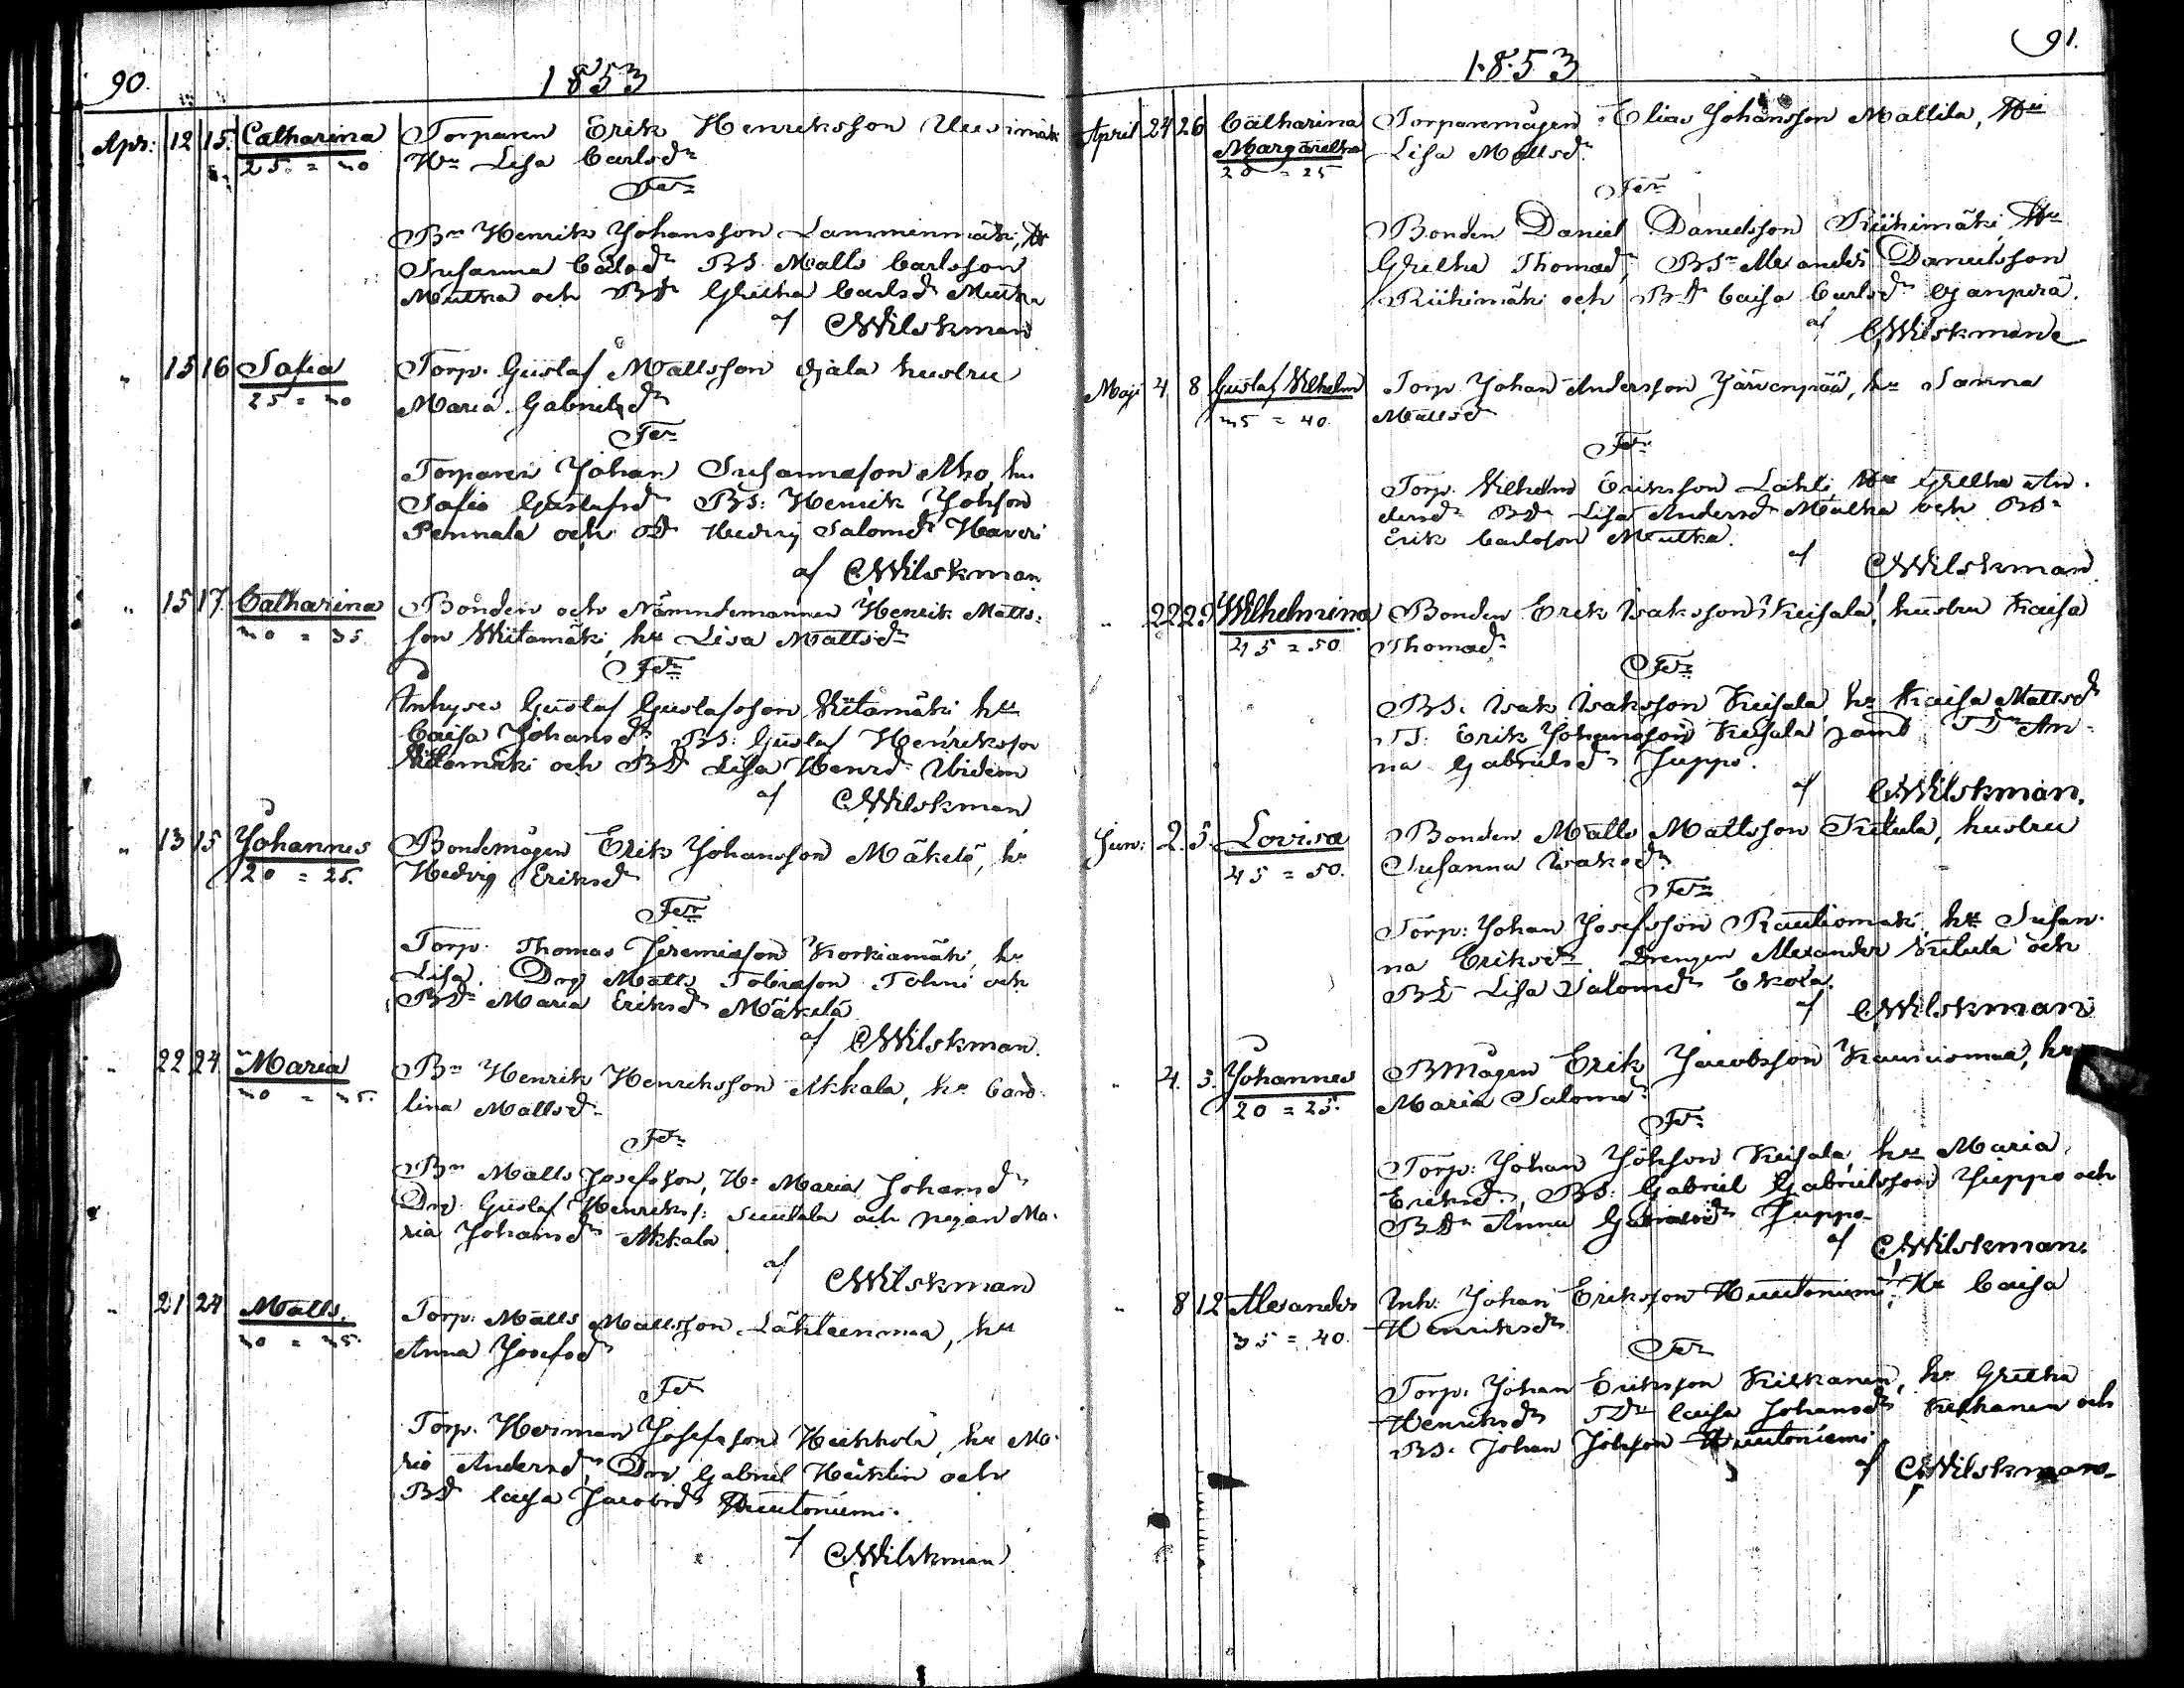 90.
1853
Apr: 12 15. Catharina Torparen Erik Henriksson Uusimäki
25 = 30 Hu Lisa Carlsdr
Fr
Bn Henrik Johansson Lamminmäki, Hu
Susanna Carlsdr BS Matts Carlsson
Mutka och BD Gretha Carlsd Mutka
af CWWilskman
" 15 16 Sofia Torp. Gustaf Mattsson Ojala hustru
25 = 30 Maria Gabrielsdr
Fr
Torparen Johan Susannasson Aho, hu
Sofia Gustafsd BS: Henrik Johsson
Pennala och BD Hedvig Salomdr Haveri
af CWWilskman
" 15 17 Catharina Bonden och Nämndemannen Henrik Matts:
30 = 35 son Wiitamäki, hu Lisa Mattsdr
Fr
Inhyses Gustaf Gustafsson Wiitamäki hu
Caisa Johansdr, BS: Gustaf Henriksson
Wiitamäki och BD Lisa Henrd Ibidem
af CWWilskman
" 13 15 Johannes Bondemågen Erik Johansson Mäkelä, hu
20 = 25. Hedvig Eriksd
Fr
Torp. Thomas Jeremiasson Korkiamäki, hu
Lisa. Drg Matts Tobiasson och
BDr Maria Eriksdr Mäkelä
af CWWilskman.
" 22 24 Maria Bn Henrik Henriksson Akkala, hu Caro-
30 = 35. lina Mattsdr
Fr
Bn Matts Josefsson, Hu Maria Johansdr
Drg Gustaf Henrikss: och pigan Ma-
ria Johansdr Akkala
af
CWWilskman
" 21 24 Matts. Torp: Matts Mattsson Lähteenmaa, hu
30 = 35. Anna Josefsdr
Fr
Torp. Herman Josefsson Heikkola, hu Ma-
ria Andersdr, Drg Gabriel och
BD Caisa Jacobsdr Huutoniemi.
af CWWilskman

91.
1853
April 24 26 Catharina Torparemågen Elias Johansson Mattila, Hu
Margaretha Lisa Mattsdr
20 = 25
Fr
Bonden Daniel Danielsson Riihimäki, Hu
Gretha Thomasdr, BSn Alexander Danielsson
Riihimäki och BD Caisa Carlsdr Ojanperä.
af CWWilskman
Maji 4 8 Gustaf Wilhelm Torp Johan Andersson Järvenpää, hu Sanna
35 = 40. Mattsdr
Fr
Torp. Wilhelm Eriksson Lahti Hu Gretha An-
dersdr BD Lisa Andersdr Mutka och BSn
Erik Carlsson Mutka.
af CWWilskman
" 22 23 Wilhelmina Bonden Erik Isaksson Keisala, hustru Kaisa
45 = 50 Thomasdr
Fr
BS: Isak Isaksson Keisala, hu Kaisa Mattsdr
TS. Erik Johansson Keisala samt TD An-
na Gabrielsdr Juppo.
af CWWilskman.
Jun: 2. 5. Lovisa Bonden Matts Mattsson Kitula, hustru
45 = 50. Susanna Isaksdr
Fr
Torp: Johan Josefsson Rautiomäki, hu Susan-
na Eriksdr Drengen Alexander Kitula och
BD Lisa Salomdr Ekola.
af CWWilskman
" 4. 5. Johannes BMågen Erik Jacobsson Kaunismaa, hu
20 = 25. Maria Salomdr
Fr
Torp: Johan Johsson Keisala, hu Maria
Eriksdr, BS: Gabriel Gabrielsson Juppo och
BDr Anna Juppo
af CWWilskman.
" 8 12 Alexander Inh: Johan Eriksson Huutoniemi, Hu Caisa
35 = 40. Henriksdr
Fr
Torp. Johan Eriksson Kiikkanen, hu Gretha
Henriksdr TDr Caisa Johansdr och
BS. Johan Johsson Huutoniemi
af CWWilskman